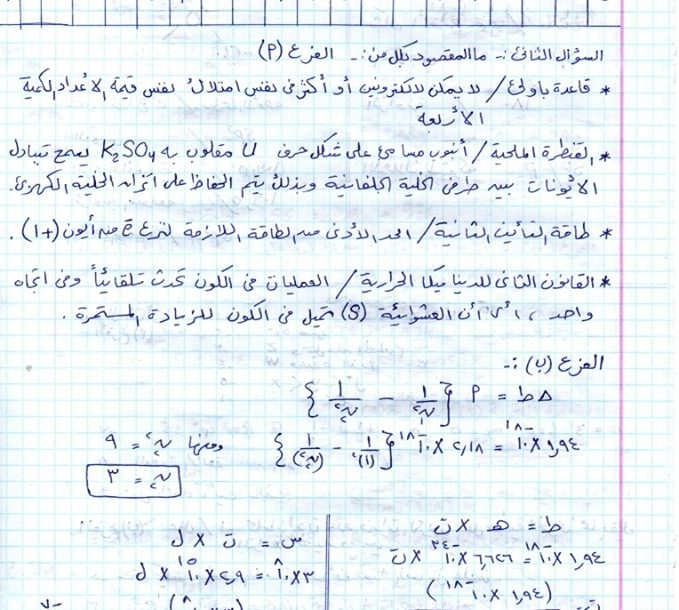 السؤال الثاني :- ما المقصود بكل من :- الفرع (P)
* قاعدة باولي / لا يمكن لالكترونين أو أكثر في نفس امتلاك نفس قيمة الأعداد الكمية
الأربعة
* القنطرة الملحية / أنبوب مسامي على شكل حرف U مقلوب به K₂SO₄ يسمح بتبادل
الأيونات بين طرفي الخلية الجلفانية وبذلك يتم الحفاظ على اتزان الخلية الكهربي.
* طاقة التأين الثانية / الحد الأدنى من الطاقة اللازمة لنزع e من أيون (+1) .
* القانون الثاني للديناميكا الحرارية / العمليات في الكون تحدث تلقائياً وفي اتجاه
واحد ، أي أن العشوائية (S) تميل في الكون للزيادة المستمرة .
الفرع (ب) :-
Δ ط = P { ١/ن₁² − ١/ن₂² }
١,٩٤ × ١٠⁻¹⁸ = ٢,١٨ × ١٠⁻¹⁸ { ١/(١)² − ١/(ن₂)² } ومنها ن₂² = ٩
ن₂ = ٣
ط = هـ × ت
١,٩٤ × ١٠⁻¹⁸ = ٦,٦٢٦ × ١٠⁻³⁴ × ت
(١,٩٤ × ١٠⁻¹⁸)
س = ت × ل
٣ × ١٠⁸ = ٢,٩ × ١٠¹⁵ × ل